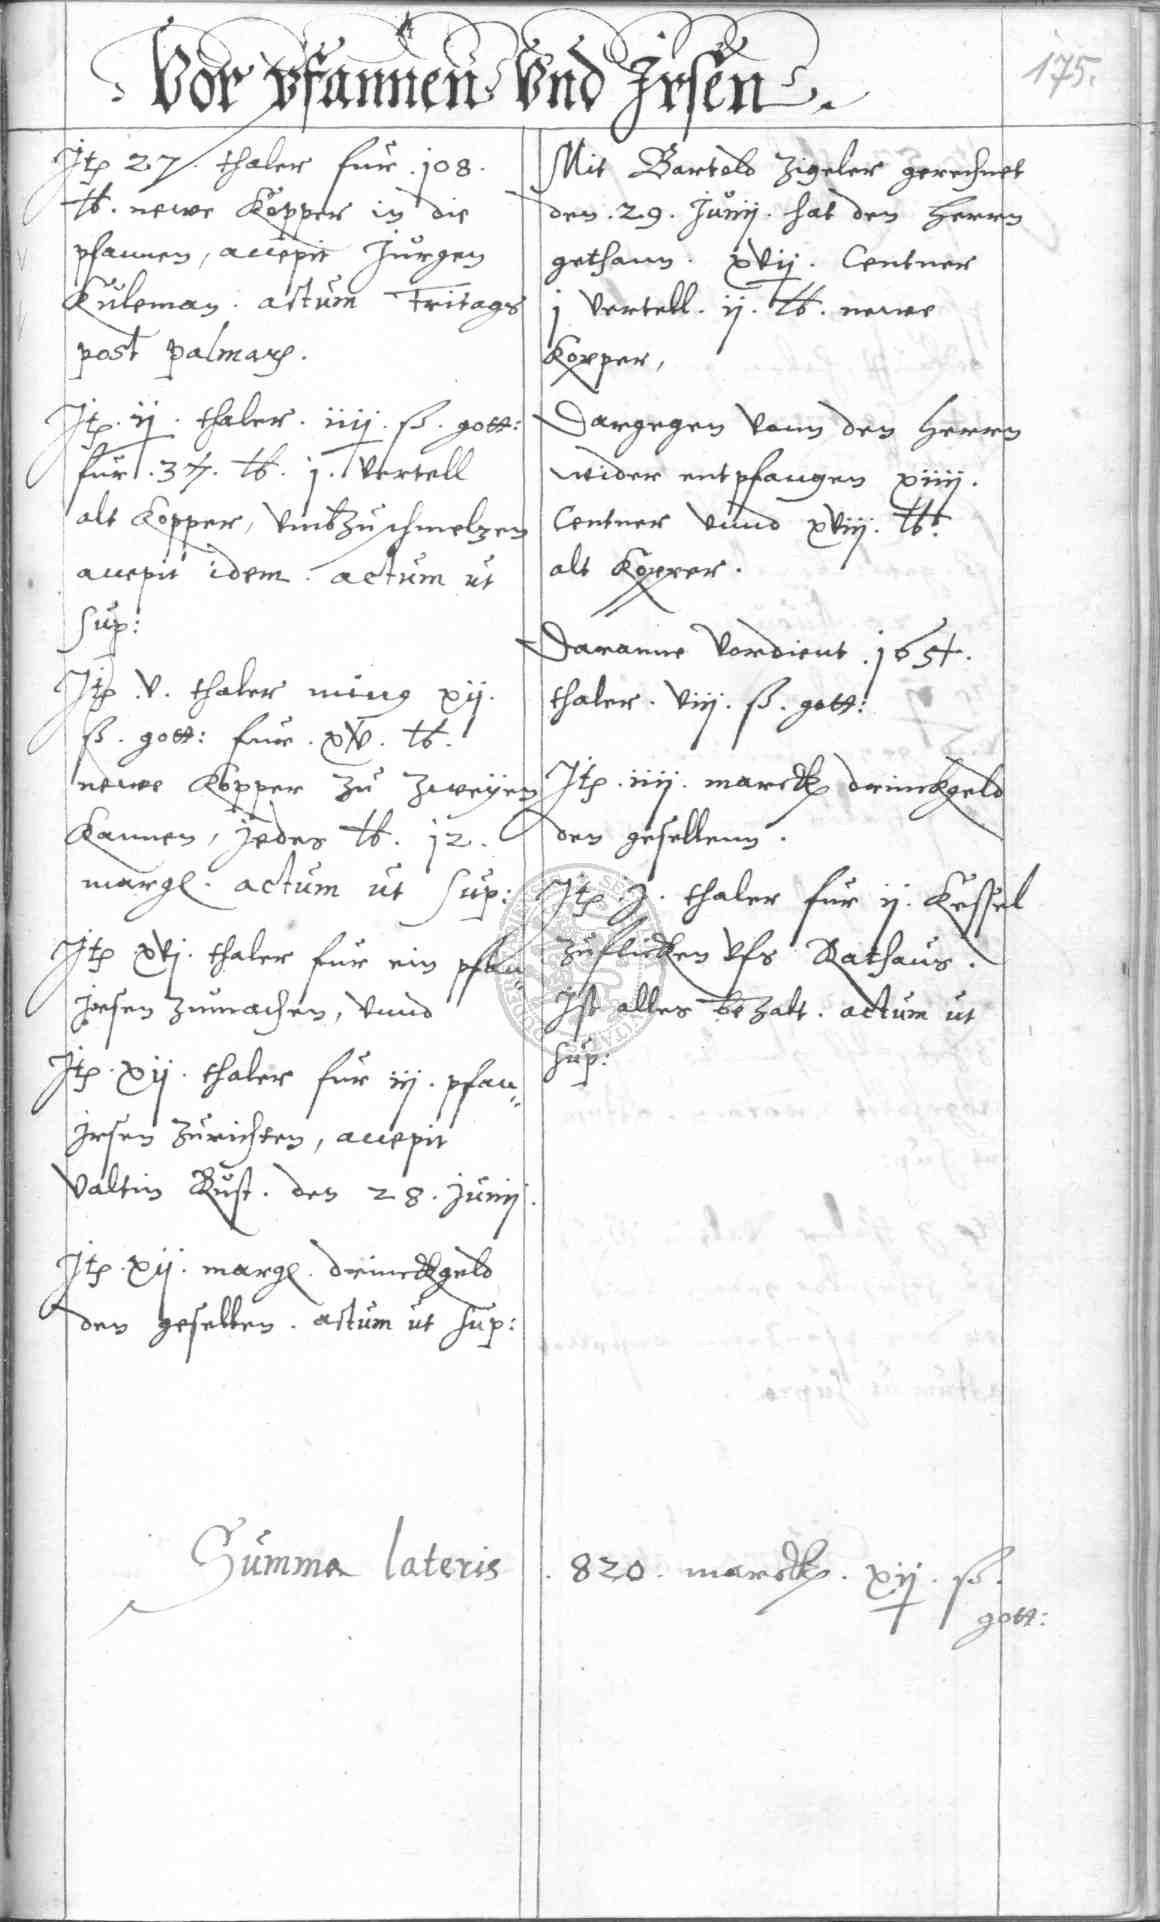 Vor pfannen Vnd Jrsen.
175.
Jtem 27. thaler fur .108.
lb. newe Kopper in die
pfannen, accepit Jurgen
Kuleman. actum Fritags
post palmarum.
Jtem. ij. thaler. iiij. ß. gott:
fur .37. lb. j. Vertell
alt Kopper, Vmbzuschmelzen
accepit idem. actum ut
sup:
Jtem V. thaler minus xij.
ß. gott: fur. xV. lb.
newe Kopper zu zweyen
Kannen, jedes lb. 12.
margl. actum ut sup:
Jtem xVj. thaler fur ein pfan
jrsen zumachen, Vnnd
Jtem. xij. thaler fur iij. pfan„
jrsen zurichten, accepit
Valtin Rust. den 28. Junij.
Jtem. xij. margl. drinckgeld
den gesellen. actum ut sup:
Mit Bartold Zigeler gerechnet
den .29. Junij. hat den Herrn
gethann. xVij. Centner
j Vertell. ij. lb. newe
Kopper,
Dargegen Vonn den Herrn
wider entpfangen xiiij.
Centner Vnnd xViij. lb.
alt Kopper.
Daranne Vordient .165½.
thaler. Viij. ß. gott:
Jtem .iiij. marck drinckgeld
den gesellenn.
Jtem .j. thaler fur ij. Kessel
zuflicken Vfs Rathaus.
Jst alles bezalt. actum ut
sup:
Summa lateris . 820. marck. xij. ß.
gott: